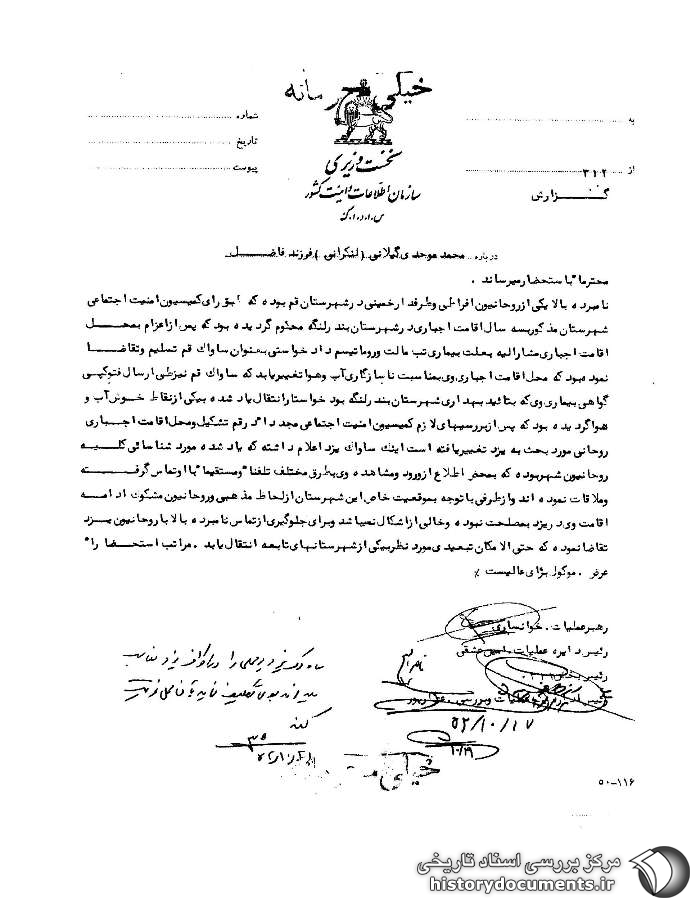 خیلی محرمانه
به
شماره
تاریخ
از ۳۱۲
پیوست
نخست وزیری
سازمان اطلاعات و امنیت کشور
س.ا.و.ا.ک
گزارش
درباره محمد موحدی گیلانی (لنکرانی) فرزند فاضل
محترما" باستحضار میرساند .
نامبرده بالا یکی از روحانیون افراطی وطرفدار خمینی در شهرستان قم بوده که طبق رای کمیسیون امنیت اجتماعی
شهرستان مذکور بسه سال اقامت اجباری در شهرستان بندر لنگه محکوم گردیده بود که پس از اعزام بمحل
اقامت اجباری مشارالیه بعلت بیماری تب مالت وروماتیسم دادخواستی بعنوان ساواک قم تسلیم وتقاضا
نموده بود که محل اقامت اجباری وی بمناسبت ناسازگاری آب وهوا تغییریابد که ساواک قم نیز طی ارسال فتوکپی
گواهی بیماری وی که بتائید بهداری شهرستان بندر لنگه بود خواستار انتقال یاد شده بیکی از نقاط خوش آب و
هوا گردیده بود که پس از بررسیهای لازم کمیسیون امنیت اجتماعی مجددا" در قم تشکیل ومحل اقامت اجباری
روحانی مورد بحث به یزد تغییر یافته است اینک ساواک یزد اعلام داشته که یاد شده مورد شناسائی کلیه
روحانیون شهر بوده که بمحض اطلاع از ورود ومشاهده وی بطرق مختلف تلفنا" ومستقیما" با او تماس گرفته
وملاقات نموده اند واز طرفی با توجه بموقعیت خاص این شهرستان از لحاظ مذهبی وروحانیون مشکوک ادامه
اقامت وی در یزد بمصلحت نبوده وخالی از اشکال نمیباشد وبرای جلوگیری از تماس نامبرده بالا با روحانیون یزد
تقاضا نموده که حتی الامکان تبعیدی مورد نظر بیکی از شهرستانهای تابعه انتقال یابد . مراتب استحضارا"
عرض . موکول برای عالیست ٪
رهبر عملیات . خوانساری
رئیس دایره عملیات .
رئیس بخش ۳۱۲
۵۲/۱۰/۱۷
۱۰/۱۹
۳۵
خیلی
۵۰-۱۱۶
مرکز بررسی اسناد تاریخی
historydocuments.ir